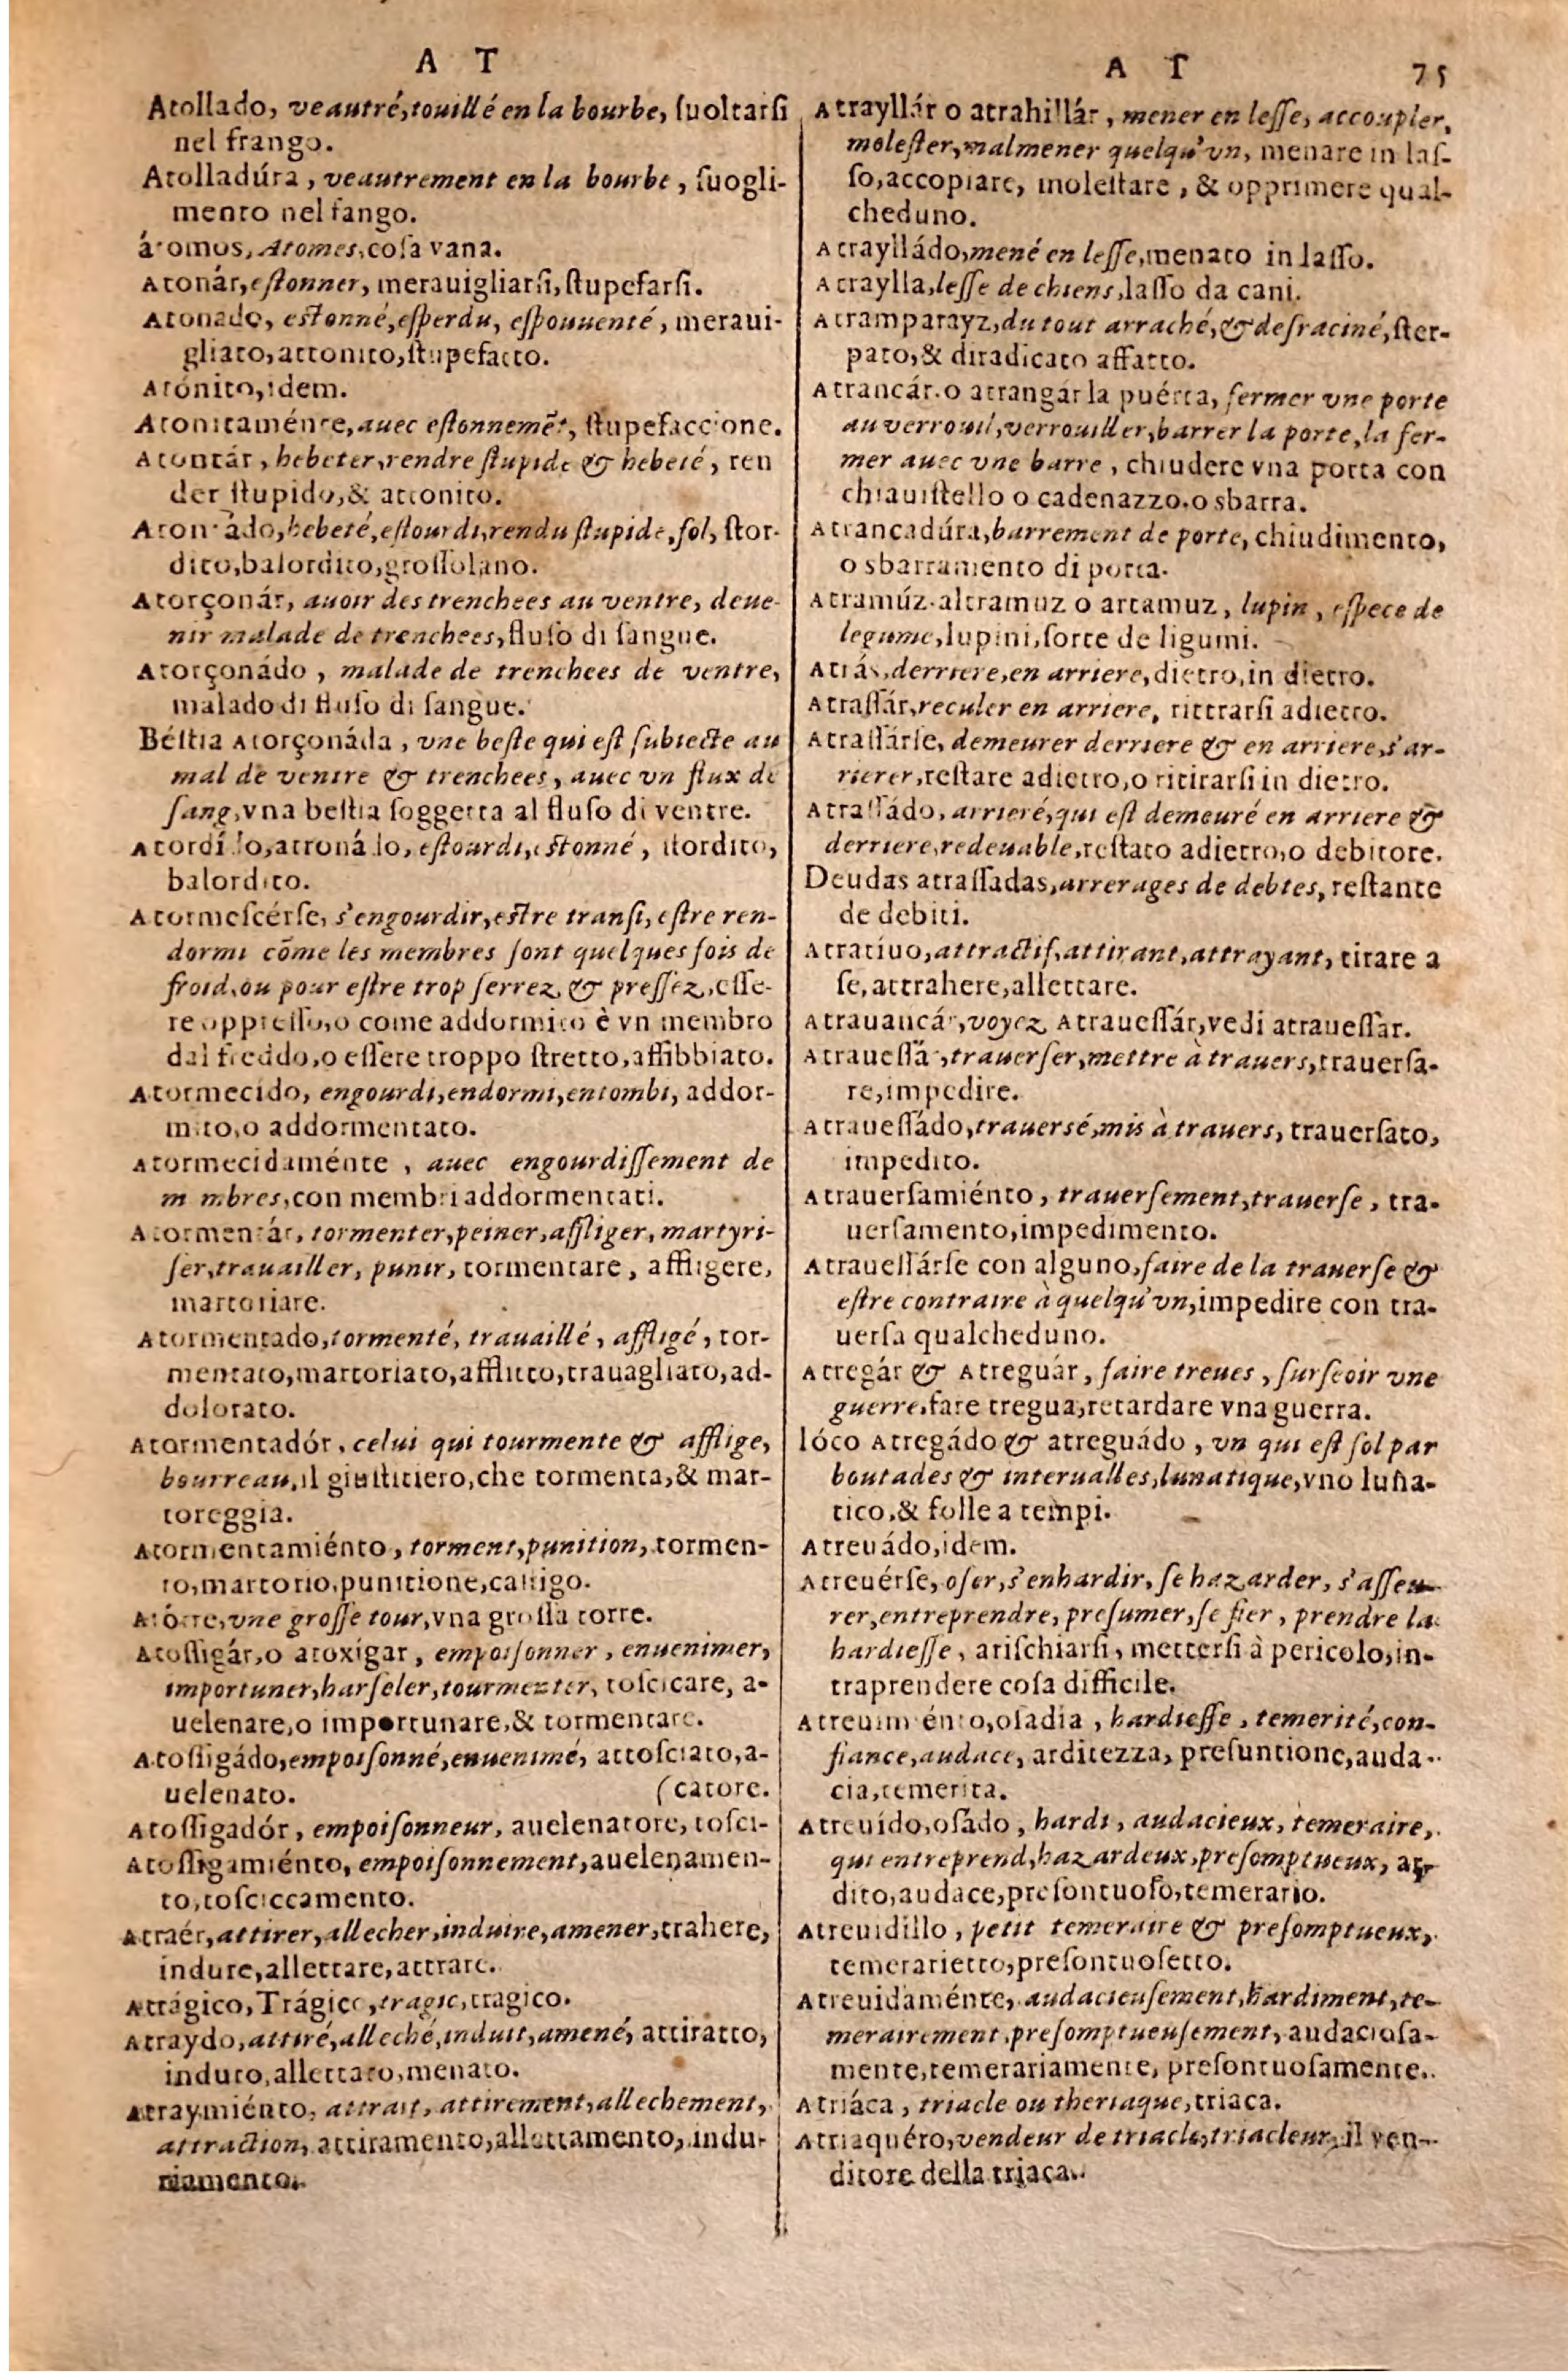 A T
Atollado, veautré, touillé en la bourbe, ſuoltarſi
nel frango.
Atolladúra, veautrement en la bourbe, ſuogli-
mento nel fango.
átomos, Atomes, coſa vana.
Atonár, eſtonner, merauigliarſi, ſtupefarſi.
Atonado, eſtonné, eſperdu, eſpouuenté, meraui-
gliato, attonito, ſtupefacto.
Atónito, idem.
Atonitaménte, auec eſtonnemẽt, ſtupefaccione.
Atontár, hebeter, rendre ſtupide & hebeté, ren
der ſtupido, & attonito.
Atontádo, hebeté, eſtourdi, rendu ſtupide, fol, ſtor-
dito, balordito, groſſolano.
Atorçonár, auoir des trenchees au ventre, deue-
nir malade de trenchees, fluſo di ſangue.
Atorçonádo, malade de trenchees de ventre,
malado di fluſo di ſangue.
Béſtia Atorçonáda, vne beſte qui eſt ſubiecte au
mal de ventre & trenchees, auec vn flux de
ſang, vna beſtia ſoggetta al fluſo di ventre.
Atordído, atronádo, eſtourdi, eſtonné, ſtordito,
balordito.
Atormeſcérſe, s'engourdir, eſtre tranſi, eſtre ren-
dormi cõme les membres ſont quelques fois de
froid, ou pour eſtre trop ſerrez & preſſez, eſſe-
re oppreſſo, o come addormito è vn membro
dal freddo, o eſſere troppo ſtretto, affibbiato.
Atormecido, engourdi, endormi, entombi, addor-
mito, o addormentato.
Atormecidaménte, auec engourdiſſement de
m mbres, con membri addormentati.
Atormentár, tormenter, peiner, affliger, martyri-
ſer, trauailler, punir, tormentare, affligere,
martoriare.
Atormentado, tormenté, trauaillé, affligé, tor-
mentato, martoriato, afflitto, trauagliato, ad-
dolorato.
Atormentadór, celui qui tourmente & afflige,
bourreau, il giuſtitiero, che tormenta, & mar-
toreggia.
Atormentamiénto, torment, punition, tormen-
to, martorio, punitione, caſtigo.
Atórre, vne groſſe tour, vna groſſa torre.
Atoſſigár, o atoxigar, empoiſonner, enuenimer,
importuner, harſeler, tourmenter, toſcicare, a-
uelenare, o importunare, & tormentare.
Atoſſigádo, empoiſonné, enuenimé, attoſciato, a-
uelenato. (catore.
Atoſſigadór, empoiſonneur, auelenatore, toſci-
Atoſſigamiénto, empoiſonnement, auelenamen-
to, toſciccamento.
Atraér, attirer, allecher, induire, amener, trahere,
indure, allettare, attrare.
Atrágico, Trágico, tragic, tragico.
Atraydo, attiré, alleché, induit, amené, attiratto,
induto, allettato, menato.
Atraymiénto, attrait, attirement, allechement,
attraction, attiramento, allettamento, indu-
niamento.
A T 75
Atrayllár o atrahillár, mener en leſſe, accoupler,
moleſter, malmener quelqu'vn, menare in laſ-
ſo, accopiare, moleſtare, & opprimere qual-
cheduno.
Atraylládo, mené en leſſe, menato in laſſo.
Atraylla, leſſe de chiens, laſſo da cani.
Atramparayz, du tout arraché, & deſraciné, ſter-
pato, & diradicato affatto.
Atrancár o atrangár la puérta, fermer vne porte
au verrouil, verrouiller, barrer la porte, la fer-
mer auec vne barre, chiudere vna porta con
chiauiſtello o cadenazzo, o sbarra.
Atrancadúra, barrement de porte, chiudimento,
o sbarramento di porta.
Atramúz altramuz o artamuz, lupin, eſpece de
legume, lupini, ſorte de ligumi.
Atrás, derriere, en arriere, dietro, in dietro.
Atraſſár, reculer en arriere, rittrarſi adietro.
Atraſſárſe, demeurer derriere & en arriere, s'ar-
rierer, reſtare adietro, o ritirarſi in dietro.
Atraſſádo, arrieré, qui eſt demeuré en arriere &
derriere, redeuable, reſtato adietro, o debitore.
Deudas atraſſadas, arrerages de debtes, reſtante
de debiti.
Atratíuo, attractif, attirant, attrayant, tirare a
ſe, attrahere, allettare.
Atrauancár, voyez Atraueſſár, vedi atraueſſar.
Atraueſſár, trauerſer, mettre à trauers, trauerſa-
re, impedire.
Atraueſſádo, trauersé, mis à trauers, trauerſato,
impedito.
Atrauerſamiénto, trauerſement, trauerſe, tra-
uerſamento, impedimento.
Atraueſſárſe con alguno, faire de la trauerſe &
eſtre contraire à quelqu'vn, impedire con tra-
uerſa qualcheduno.
Atregár & Atreguár, faire treues, ſurſeoir vne
guerre, fare tregua, retardare vna guerra.
lóco Atregádo & atreguádo, vn qui eſt fol par
boutades & interualles, lunatique, vno luna-
tico, & folle a tempi.
Atreuádo, idem.
Atreuérſe, oſer, s'enhardir, ſe hazarder, s'aſſeu-
rer, entreprendre, preſumer, ſe fier, prendre la
hardieſſe, ariſchiarſi, metterſi à pericolo, in-
traprendere coſa difficile.
Atreuimiénto, oſadia, hardieſſe, temerité, con-
fiance, audace, arditezza, preſuntione, auda-
cia, temerita.
Atreuído, oſádo, hardi, audacieux, temeraire,
qui entreprend, hazardeux, preſomptueux, ar-
dito, audace, preſontuoſo, temerario.
Atreuidillo, petit temeraire & preſomptueux,
temerarietto, preſontuoſetto.
Atreuidaménte, audacieuſement, hardiment, te-
merairement, preſomptueuſement, audacioſa-
mente, temerariamente, preſontuoſamente.
Atriáca, triacle ou theriaque, triaca.
Atriaquéro, vendeur de triacle, triacleur, il ven-
ditore della triaca.